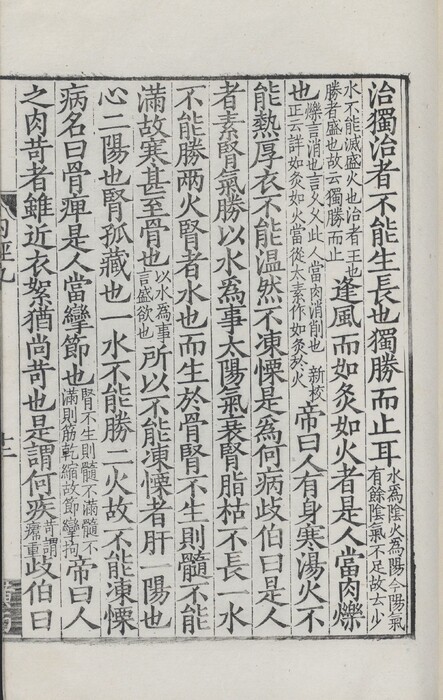 治獨治者不能生長也獨勝而止耳
水為陰火為陽今陽氣
有餘陰氣不足故云少
水不能滅盛火也治者王也
勝者盛也故云獨勝而止
逢風而如炙如火者是人當肉爍
也
爍言消也言久久此人當肉消削也 新校
正云詳如炙如火當從太素作如炙於火
帝曰人有身寒湯火不
能熱厚衣不能温然不凍慄是為何病歧伯曰是人
者素腎氣勝以水為事太陽氣衰腎脂枯不長一水
不能勝兩火腎者水也而生於骨腎不生則髓不能
滿故寒甚至骨也
以水為事
言盛欲也
所以不能凍慄者肝一陽也
心二陽也腎孤藏也一水不能勝二火故不能凍慄
病名曰骨痺是人當攣節也
腎不生則髓不滿髓不
滿則筋乾縮故節攣拘
帝曰人
之肉苛者雖近衣絮猶尚苛也是謂何疾
苛謂
重
歧伯曰